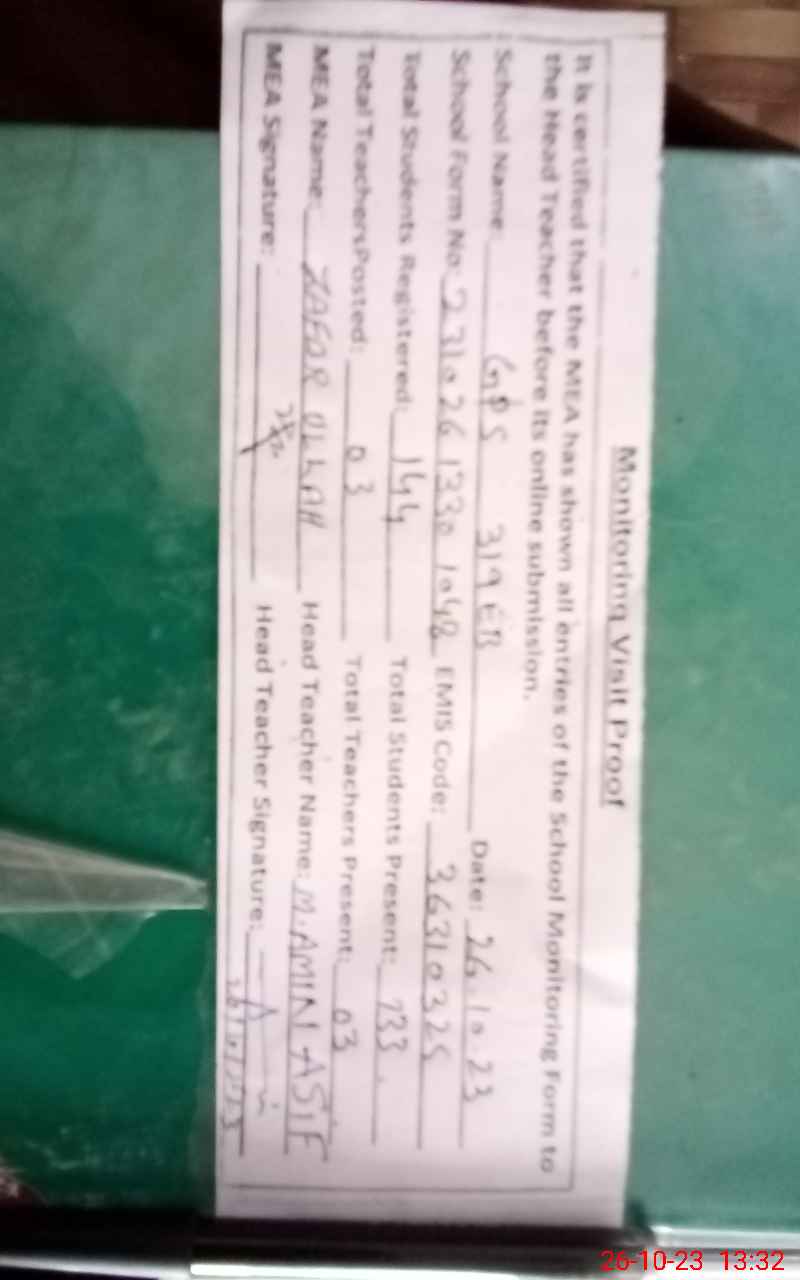 Monitoring Visit Proof
It is certified that the MEA has shown all entries of the School Monitoring Form to
the Head Teacher before its online submission.
School Name: GPS 319 EB Date: 26.10.23
School Form No: 231026 1330 1048 EMIS Code: 36310325
Total Students Registered: 144 Total Students Present: 133
Total TeachersPosted: 03 Total Teachers Present: 03
MEA Name: ZAFAR ULLAH Head Teacher Name: M. AMIN ASIF
MEA Signature: Head Teacher Signature:
26-10-23 13:32